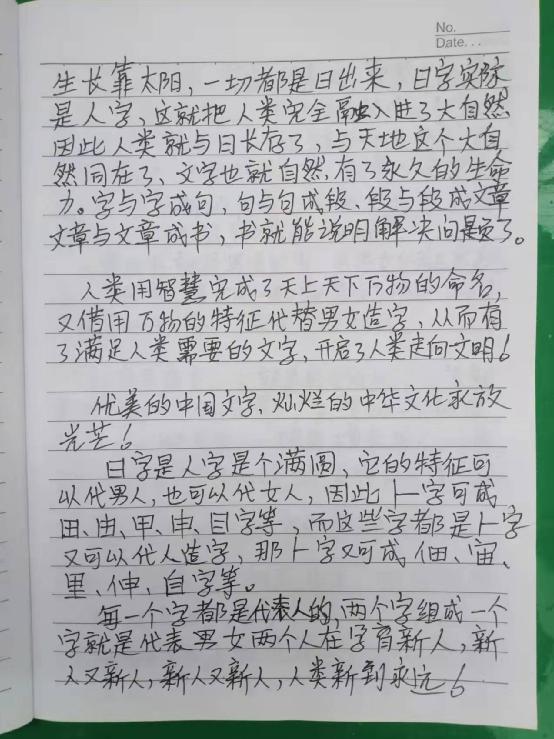 No.
Date...
生长靠太阳，一切都是日出来，日字实际
是人字，这就把人类完全融入进了大自然
因此人类就与日长存了，与天地这个大自
然同在了、文字也就自然，有了永久的生命
力。字与字成句，句与句成段、段与段成文章
文章与文章成书，书就能说明解决问题了。
人类用智慧完成了天上天下万物的命名，
又借用万物的特征代替男女造字，从而有
了满足人类需要的文字，开启了人类走向文明！
优美的中国文字，灿烂的中华文化永放
光芒！
日字是人字是个满圆，它的特征可
以代男人，也可以代女人，因此卜字可成
田、由、甲、申、目字等，而这些字都是卜字
又可以代人造字，那卜字又可成佃、宙、
里、伸、自字等。
每一个字都是代表人的，两个字组成一个
字就是代表男女两个人在字育新人，新
人又新人，新人又新人，人类新到永远！